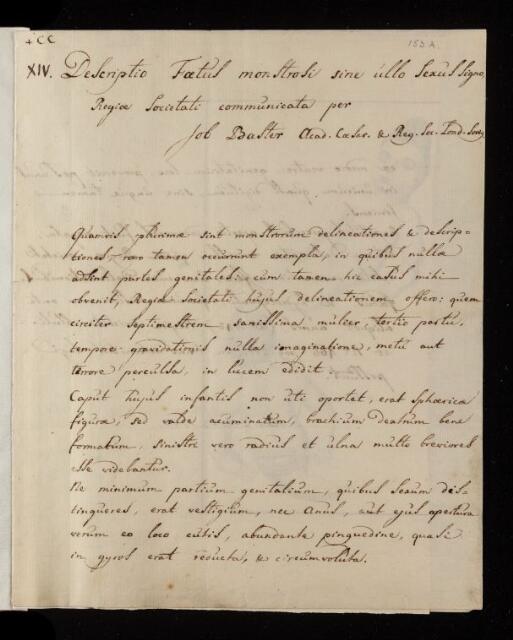 +CC
153 A.
XIV. Descriptio Fœtus monstrosi sine ullo Sexus signo,
Regiæ Societati communicata per
Job Baster Acad. Cæsar. & Reg. Soc. Lond. Soc.
Quamvis plurimæ sint monstrorum delineationes & descrip-
tiones, raro tamen occurrunt exempla, in quibus nullæ
adsint partes genitales; cum tamen hic casus mihi
obvenit, Regiæ Societati hujus delineationem offero: quem
circiter septimestrem sanissima mulier tertio partu,
tempore gravidationis nulla imaginatione, metu aut
terrore perculsa, in lucem edidit.
Caput hujus infantis non uti oportet, erat sphærica
figura, sed valde acuminatum, brachium dextrum bene
formatum, sinistri vero radius et ulna multo breviores
esse videbantur.
Ne minimum partium genitalium, quibus sexum dis-
tingueres, erat vestigium, nec Anus, aut ejus apertura
verum eo loco cutis, abundante pinguedine, quasi
in gyros erat reducta, & circumvoluta.